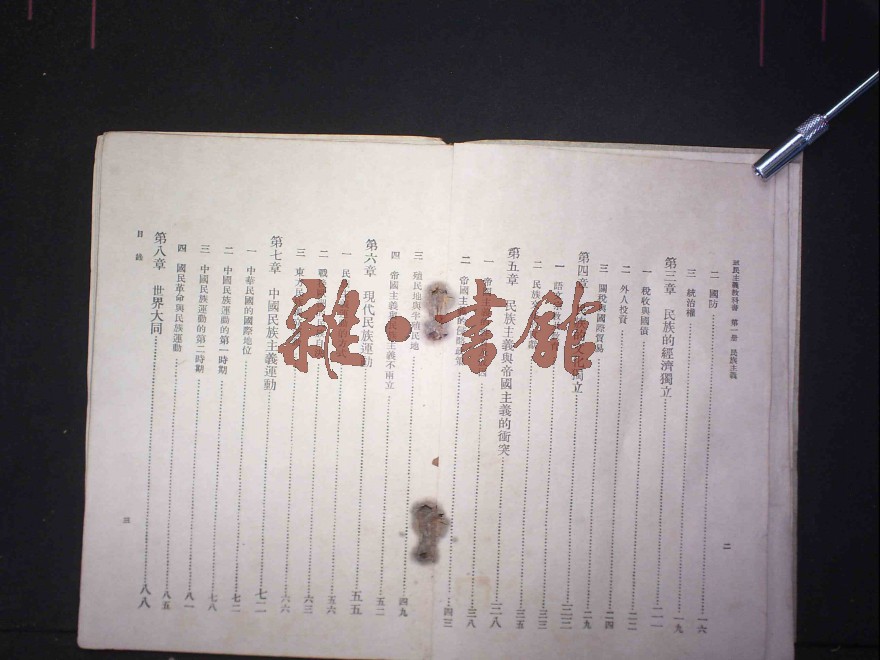 三民主義敎科書 第一册 民族主義
二
二 國防 一六
三 統治權 一九
第三章 民族的經濟獨立 二一
一 稅收與國債 二一
二 外人投資 二二
三 關稅與國際貿易 二四
第四章 獨立 二九
一 語 三三
二 民族 三三
第五章 民族主義與帝國主義的衝突 三五
一 帝國主義 三八
二 帝國主義的 三八
三 殖民地與半殖民地 四三
四 帝國主義與民族主義不兩立 四九
第六章 現代民族運動 五二
一 民 五五
二 戰 五六
三 東方民族 六三
第七章 中國民族主義運動 六六
一 中華民國的國際地位 七二
二 中國民族運動的第一時期 七二
三 中國民族運動的第二時期 七八
四 國民革命與民族運動 八一
第八章 世界大同 八五
八八
目錄
三
雜·書館